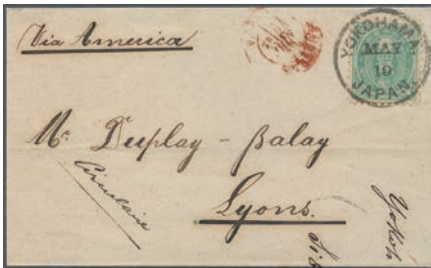 Via America
YOKOHAMA
MAY
19
JAPAN.
Mr. Duplay - Balay
Circulaire
Lyons.
Yokoh